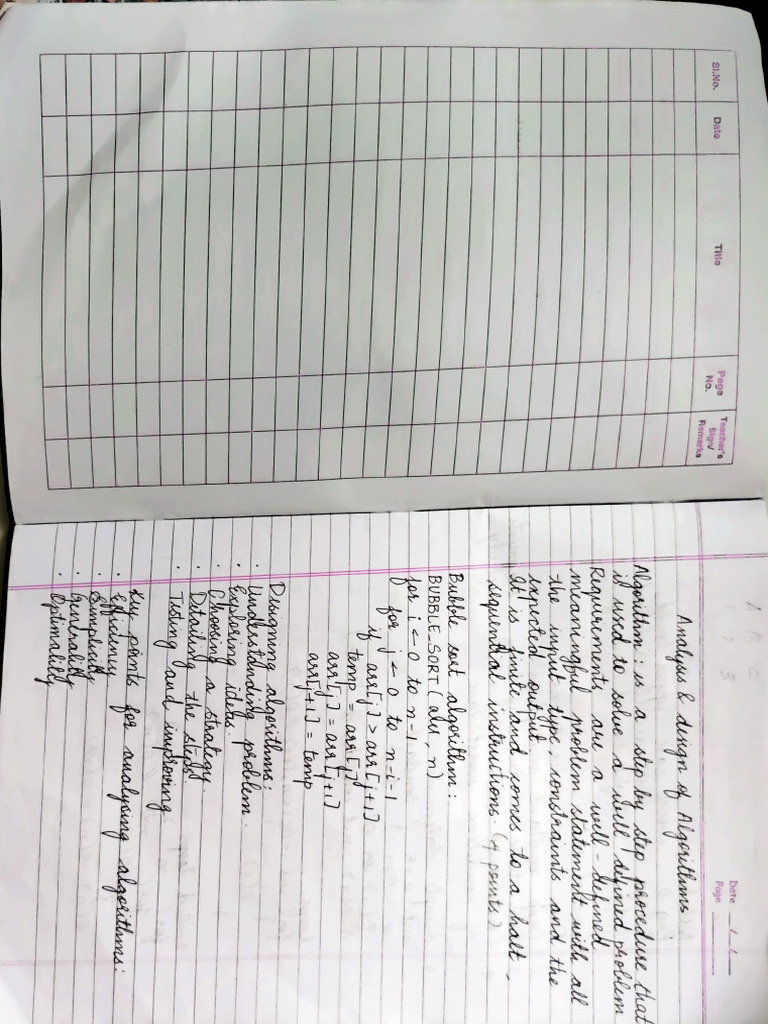 Sl.No.
Date
Title
Page No.
Teacher's Sign/ Remarks
Date
Page
Analysis & design of Algorithms
Algorithm : is a step by step procedure that
is used to solve a well defined problem
Requirements are a well-defined
meaningful problem statement with all
the input type, constraints and the
expected output
It is finite and comes to a halt,
sequential instructions. (4 points)
Bubble sort algorithm :
BUBBLE_SORT (alu, n)
for i ← 0 to n-1
for j ← 0 to n-i-1
if arr[j] > arr[j+1]
temp = arr[j]
arr[j] = arr[j+1]
arr[j+1] = temp
Designing algorithms :
· Understanding problem.
· Exploring ideas.
· Choosing a strategy
· Detailing the steps
· Testing and improving
Key points for analysing algorithms :
· Efficiency
· Simplicity
· Generality
· Optimality